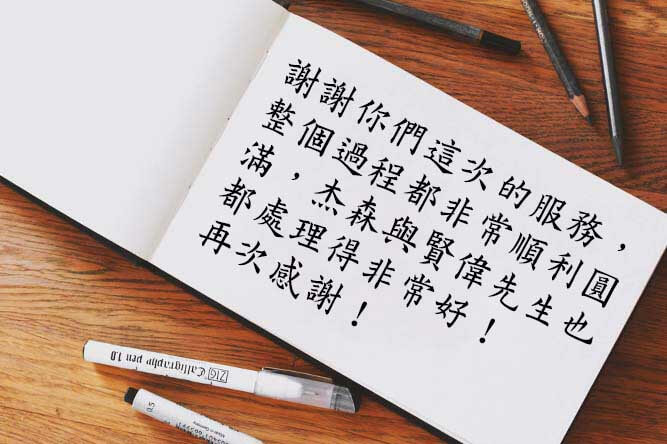 謝謝你們這次的服務，
整個過程都非常順利圓
滿，杰森與賢偉先生也
都處理得非常好！
再次感謝！
ZIG Calligraphy pen 1.0
0.5